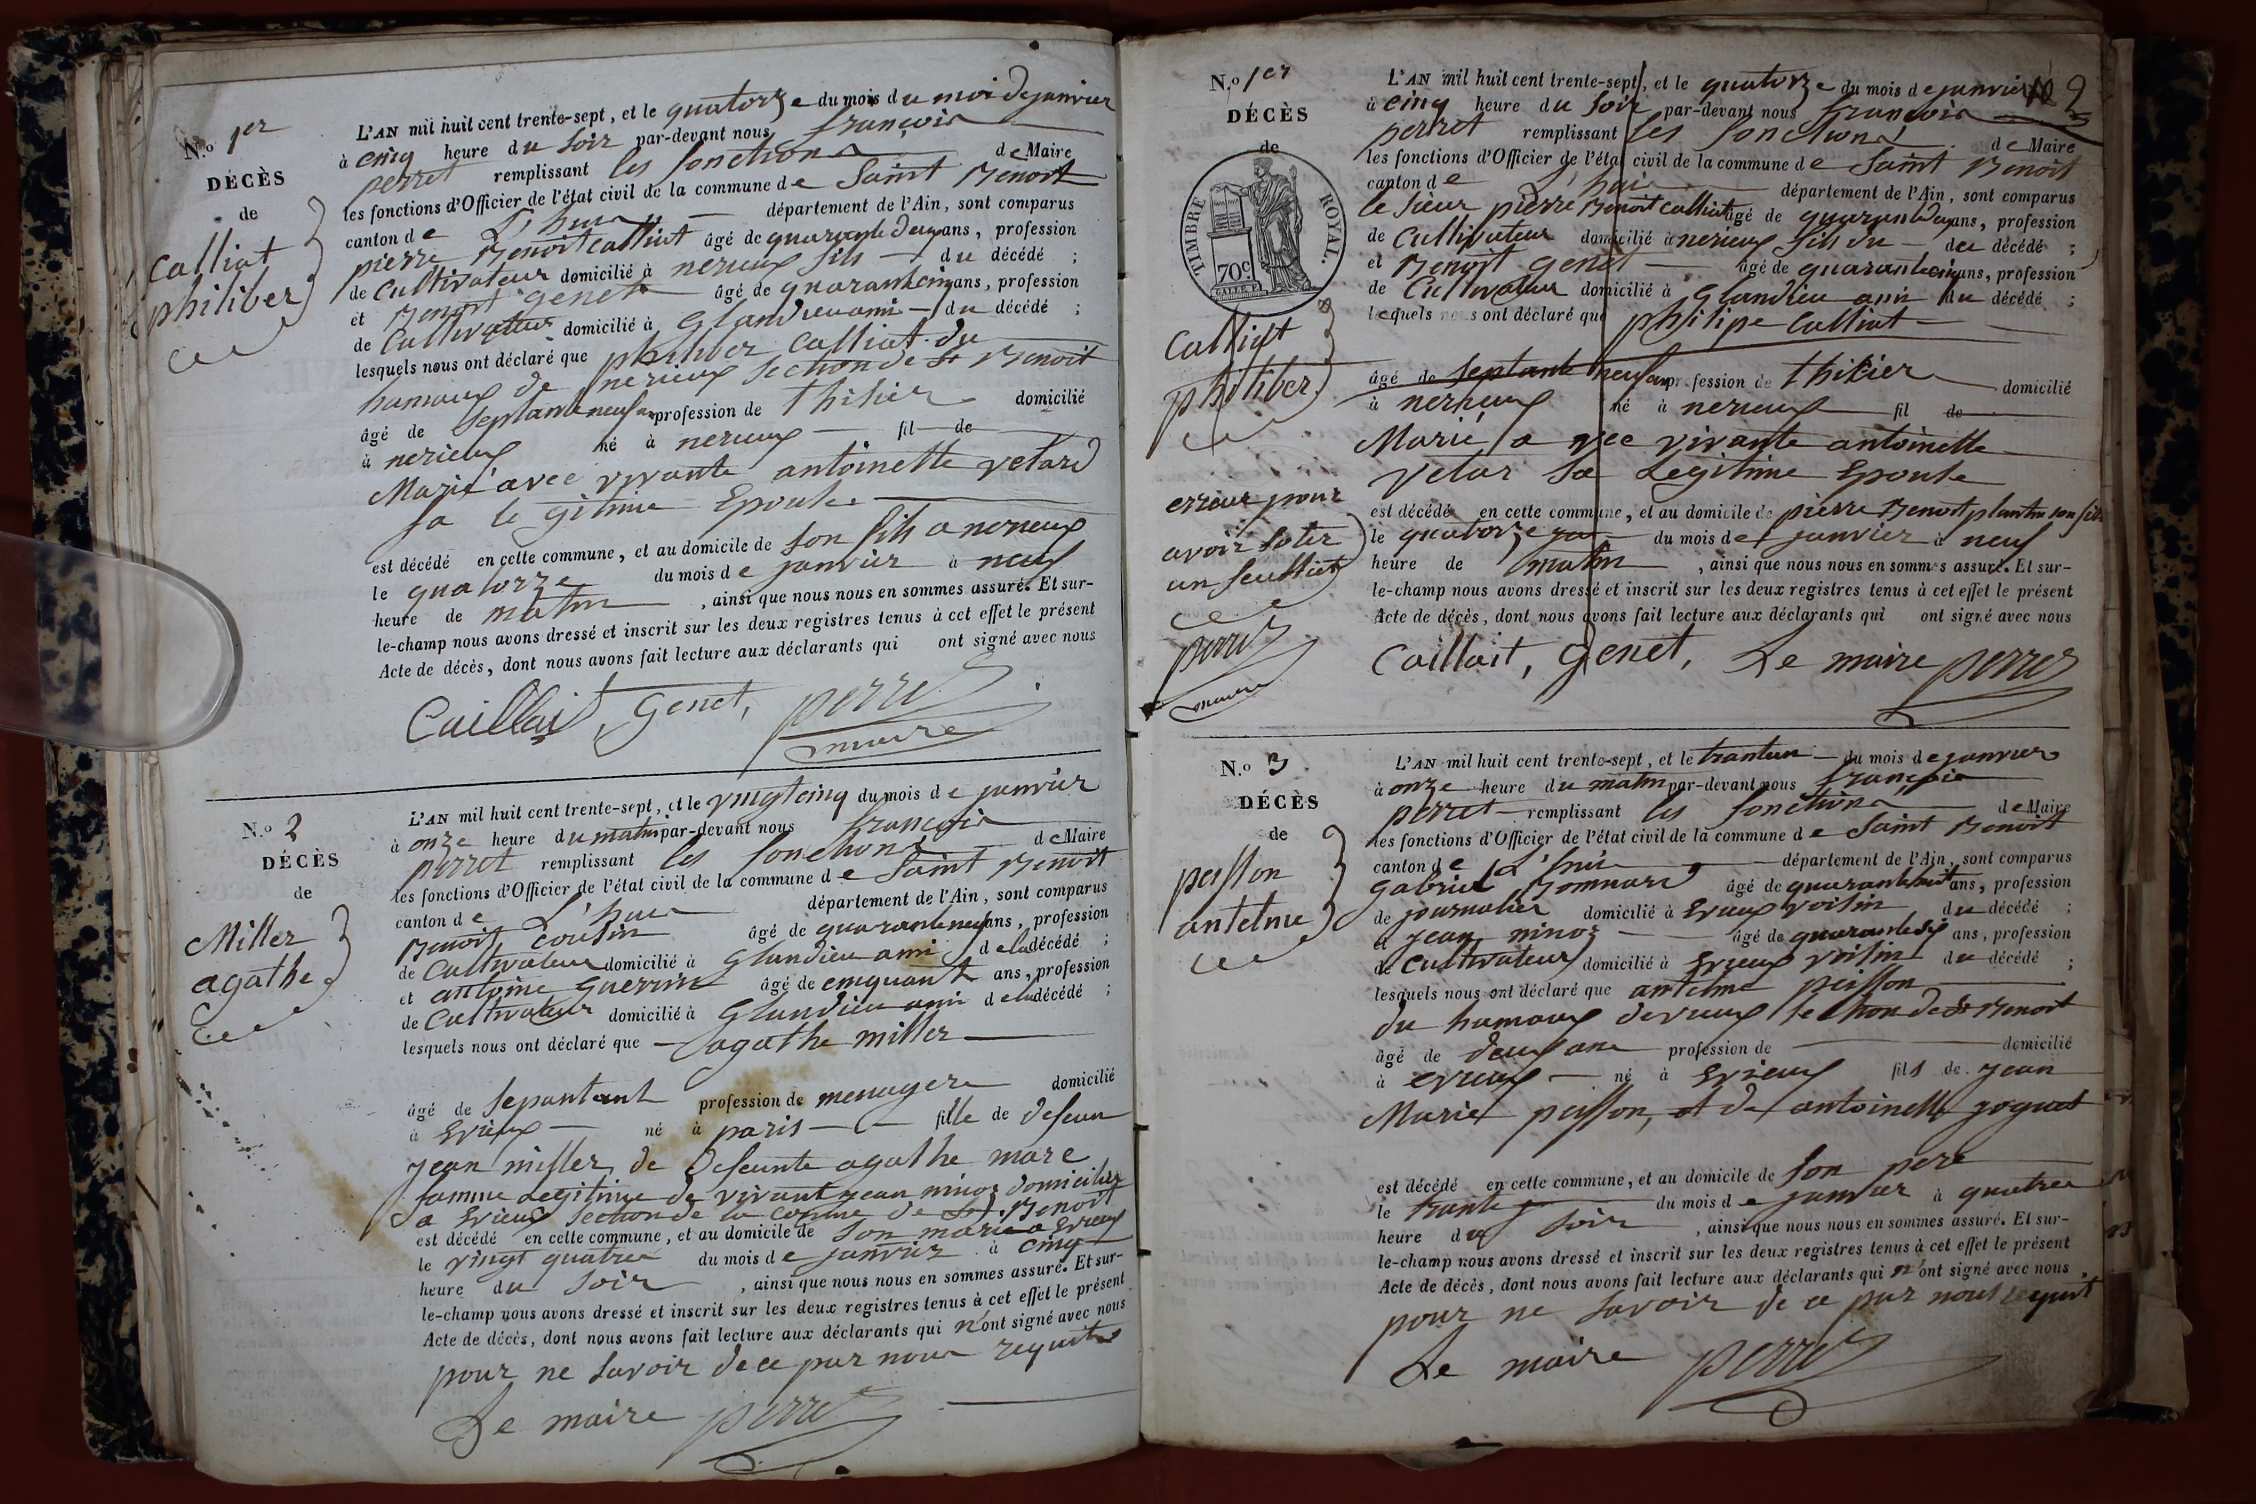 N.o 1er
DÉCÈS
de
Calliat
philiber
L'AN mil huit cent trente-sept, et le quatorze du mois du moi de janvier
à cinq heure du soir par-devant nous françois
perret remplissant les fonctions de Maire
les fonctions d'Officier de l'état civil de la commune de Saint Benoit
canton de L'huis département de l'Ain, sont comparus
pierre Benoit calliat âgé de quarante deux ans, profession
de Cultivateur domicilié à nerieux fils du décédé ;
et Benoit genet âgé de quarantecinq ans, profession
de Cultivateur domicilié à Glandieu ami du décédé ;
lesquels nous ont déclaré que philiber Calliat du
hamaux de nerieux section de St Benoit
âgé de septante neuf an profession de thisier domicilié
à nerieux né à nerieux fil de
Marié avec vivante antoinette vetard
sa legitime Epouse
est décédé en cette commune, et au domicile de son fils a nerieux
le quatorze du mois de janvier à neuf
heure de matin , ainsi que nous nous en sommes assuré. Et sur-
le-champ nous avons dressé et inscrit sur les deux registres tenus à cet effet le présent
Acte de décès, dont nous avons fait lecture aux déclarants qui ont signé avec nous
Caillait, Genet, perret
maire
N.o 2
DÉCÈS
de
Miller
agathe
L'AN mil huit cent trente-sept, et le vingtcinq du mois de janvier
à onze heure du matin par-devant nous françois
perret remplissant les fonctions de Maire
les fonctions d'Officier de l'état civil de la commune de Saint Benoit
canton de L'huis département de l'Ain, sont comparus
Benoit cousin âgé de quaranteneuf ans, profession
de Cultivateur domicilié à Glandieu ami de la décédé ;
et antoine Guerin âgé de cinquante ans, profession
de Cultivateur domicilié à Glandieu ami de la décédé ;
lesquels nous ont déclaré que agathe miller
âgé de sepantant profession de menagere domicilié
à Evieux né à paris fille de defeun
jean miller de defeunte agathe mare
famme Legitime de vivant jean minoz domicilier
a Evieux section de la comune de St. Benoit
est décédé en cette commune, et au domicile de son marie a Evieux
le vingt quatre du mois de janvier à cinq
heure du soir , ainsi que nous nous en sommes assuré. Et sur-
le-champ nous avons dressé et inscrit sur les deux registres tenus à cet effet le présent
Acte de décès, dont nous avons fait lecture aux déclarants qui n'ont signé avec nous
pour ne savoir de ce par nous requit
Le maire perret
N.o 1er
DÉCÈS
de
TIMBRE ROYAL.
70c.
Calliat
philiber
erreur pour
avoir soter
un feulliet
perret
maire
L'AN mil huit cent trente-sept, et le quatorze du mois de janvier
à cinq heure du soir par-devant nous françois
perret remplissant les fonctions de Maire
les fonctions d'Officier de l'état civil de la commune de Saint Benoit
canton de L'huis département de l'Ain, sont comparus
le sieur pierre Benoit calliat âgé de quarante deux ans, profession
de Cultivateur domicilié à nerieux fils du décédé ;
et Benoit genet âgé de quarantecinq ans, profession
de Cultivateur domicilié à Glandieu ami du décédé ;
lequels nous ont déclaré que philipe Calliat
âgé de septante neuf an profession de thisier domicilié
à nerieux né à nerieux fil de
Marié avec vivante antoinette
vetar sa Legitime Epouse
est décédé en cette commune, et au domicile de pierre Benoit son fils
le quatorze du mois de janvier à neuf
heure de matin , ainsi que nous nous en sommes assuré. Et sur-
le-champ nous avons dressé et inscrit sur les deux registres tenus à cet effet le présent
Acte de décès, dont nous avons fait lecture aux déclarants qui ont signé avec nous
Caillait, Genet, Le maire perret
N.o 3
DÉCÈS
de
peisson
antelme
L'AN mil huit cent trente-sept, et le trantun du mois de janvier
à onze heure du matin par-devant nous françois
perret remplissant les fonctions de Maire
les fonctions d'Officier de l'état civil de la commune de Saint Benoit
canton de L'huis département de l'Ain, sont comparus
gabriel Bonnard âgé de quarantehuit ans, profession
de journalier domicilié à Evieux voisin du décédé ;
et jean minoz âgé de quarantesix ans, profession
de Cultivateur domicilié à Evieux voisin du décédé ;
lesquels nous ont déclaré que antelme peisson
du hamaux devieux section de St Benoit
âgé de deux ans profession de domicilié
à evieux né à Evieux fils de jean
Marie peisson, et de antoinette goguet
est décédé en cette commune, et au domicile de son pere
le trante du mois de janvier à quatre
heure du soir , ainsi que nous nous en sommes assuré. Et sur-
le-champ nous avons dressé et inscrit sur les deux registres tenus à cet effet le présent
Acte de décès, dont nous avons fait lecture aux déclarants qui n'ont signé avec nous
pour ne savoir de ce par nous requit
Le maire perret